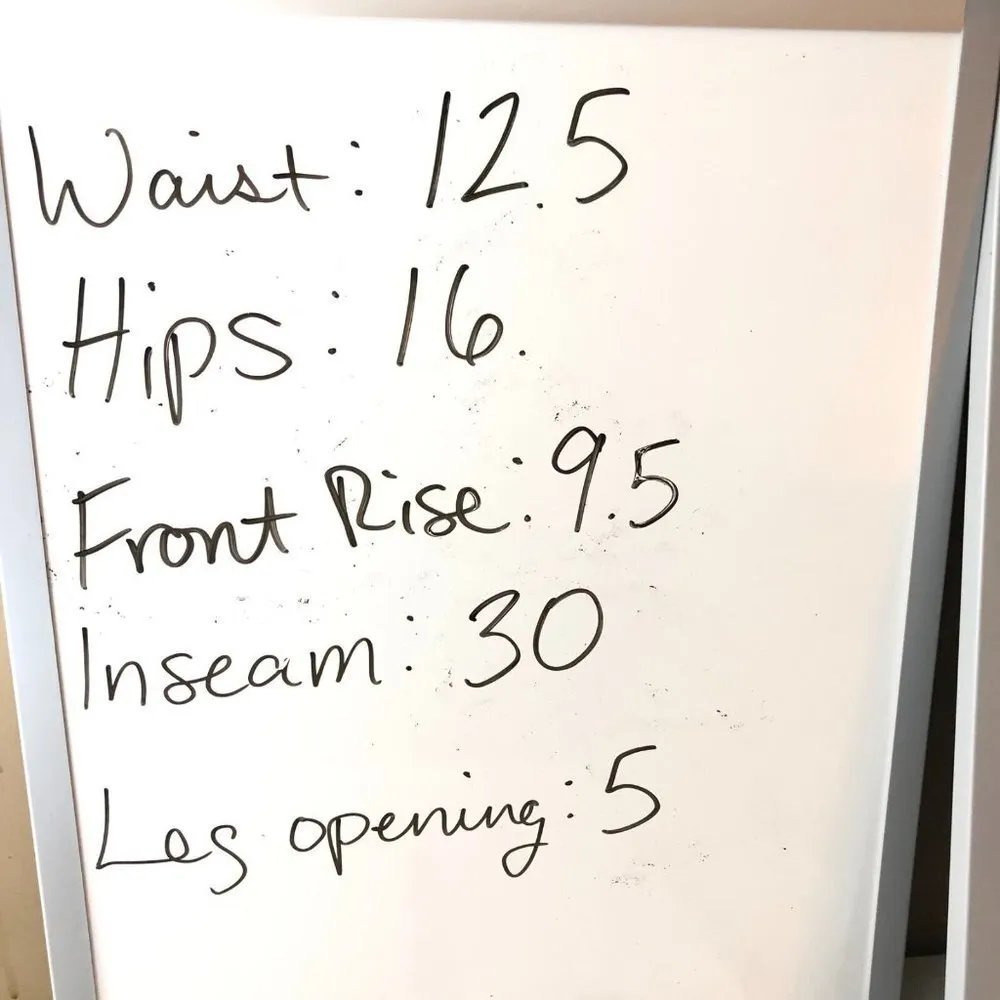 Waist: 12.5
Hips: 16.
Front Rise: 9.5
Inseam: 30
Leg opening: 5